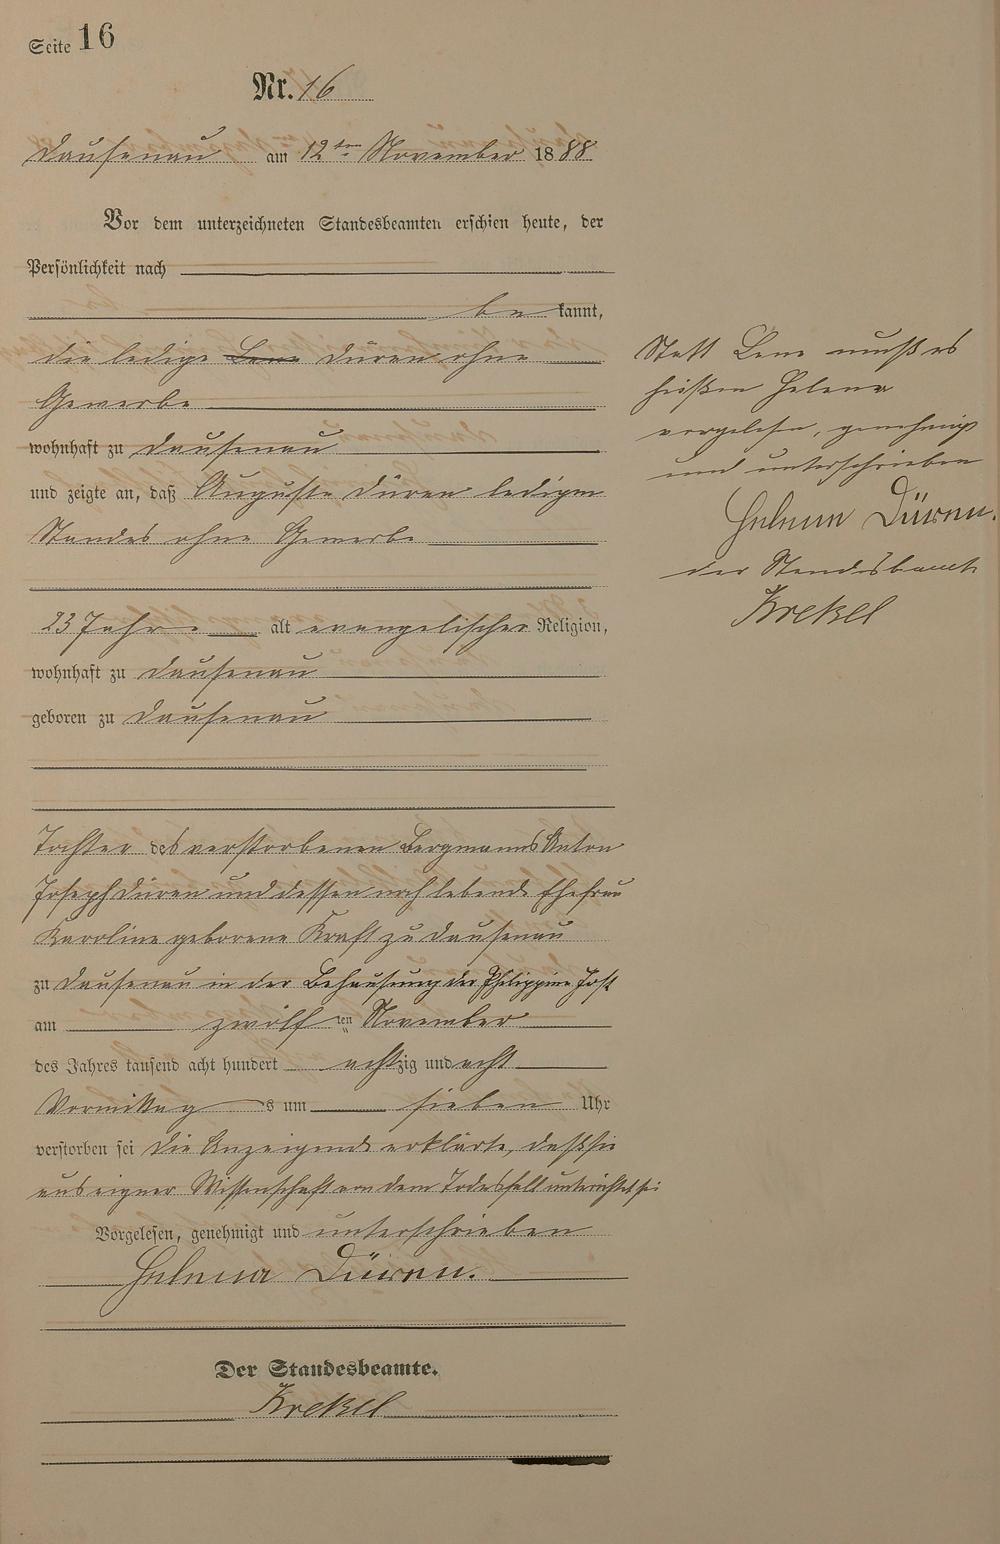 Seite 16
Nr. 16
Dausenau am 12ten November 1888
Vor dem unterzeichneten Standesbeamten erschien heute, der
Persönlichkeit nach
bekannt,
die ledige Lene Düren ohne
Gewerbe
wohnhaft zu Dausenau
und zeigte an, daß Auguste Düren ledigen
Standes ohne Gewerbe
23 Jahre alt evangelischer Religion,
wohnhaft zu Dausenau
geboren zu Dausenau
Tochter des verstorbenen Bergmanns Anton
Joseph Düren und dessen noch lebende Ehefrau
Karoline geborene Kraft zu Dausenau
zu Dausenau in der Behausung der Philippine Jost
am zwölften November
des Jahres tausend acht hundert achtzig und acht
Vormittags um sieben Uhr
verstorben sei die Anzeigende erklärte, daß sie
aus eigner Wissenschaft von dem Todesfall unterrichtet sei
Vorgelesen, genehmigt und unterschrieben
Helena Düren.
Der Standesbeamte.
Krekel
Statt Lene muß es
heißen Helena
vorgelesen, genehmigt
und unterschrieben
Helena Düren.
der Standesbeamte
Krekel